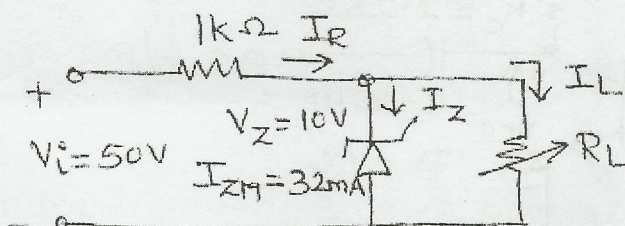 1kΩ I_R
+
V_Z=10V I_Z I_L
V_i=50V
I_ZM=32mA R_L
−